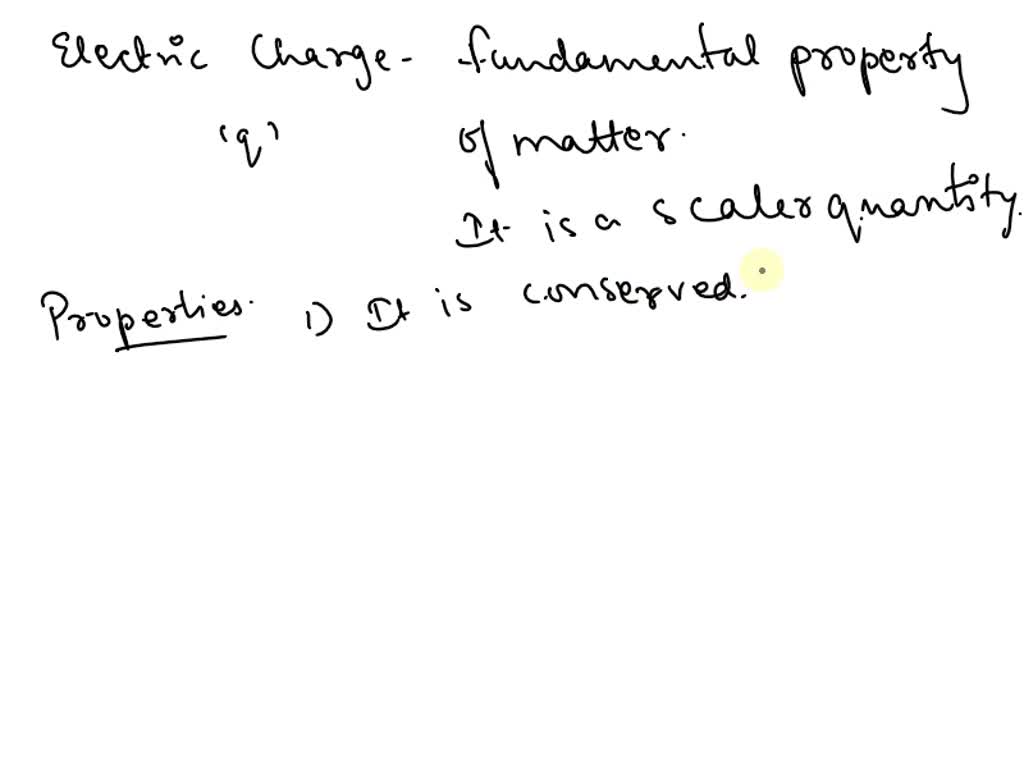 Electric Charge - fundamental property
'q' of matter.
It is a scaler quantity.
Properties. 1) It is conserved.